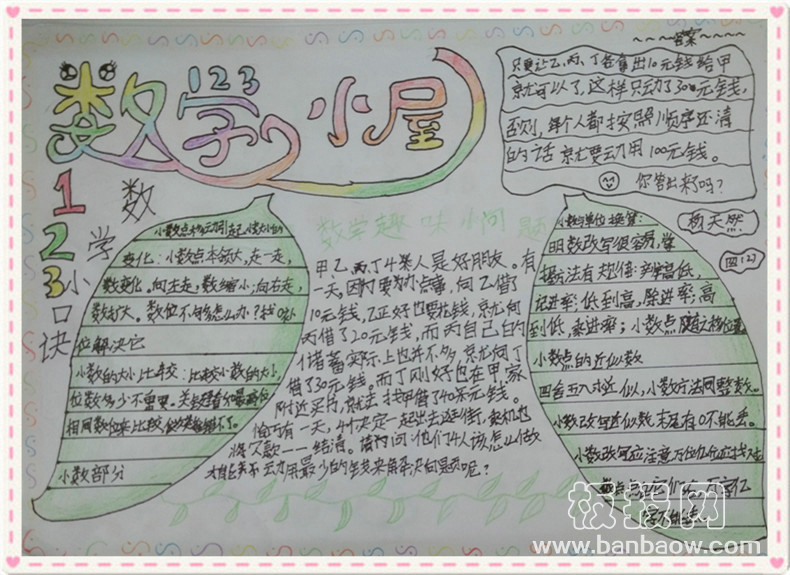 数学小屋
123
123
数学小口诀
答案
只要让乙、丙、丁各拿出10元钱给甲
就可以了,这样只动了30元钱,
否则,每个人都按照顺序还清
的话就要动用100元钱。
你答出来了吗?
杨天然
四(2)
小数点移动引起小数大小的
变化:小数点本领大,走一走,
数变化。向左走,数缩小;向右走,
数扩大。数位不够怎么办?找0占
位解决它
小数的大小比较:比较小数的大小,
位数多少不重要。
相同数位来比较,
小数部分
数学趣味小问题
甲、乙、丙、丁4人是好朋友。有
一天,因为要办点事,向乙借了
10元钱,乙正好也要花钱,就向
丙借了20元钱,而丙自己的
储蓄实际上也并不多,就向丁
借了30元钱。而丁刚好也在甲家
附近买书,就去找甲借了40元钱。
恰巧有一天,4人决定一起出去逛街,趁机也
将欠款一一结清。请问:他们4人该怎么做
才能动用最少的钱来解决问题呢?
小数与单位换算:
明数改写很容易,掌
握方法有规律:高低,
记进率;低到高,除进率;高
到低,乘进率;小数点
小数点的近似数
四舍五入求近似,小数方法同整数。
小数改写近似数,末尾有0不能丢。
小数改写应注意,万位亿位
极报网
www.banbaow.com